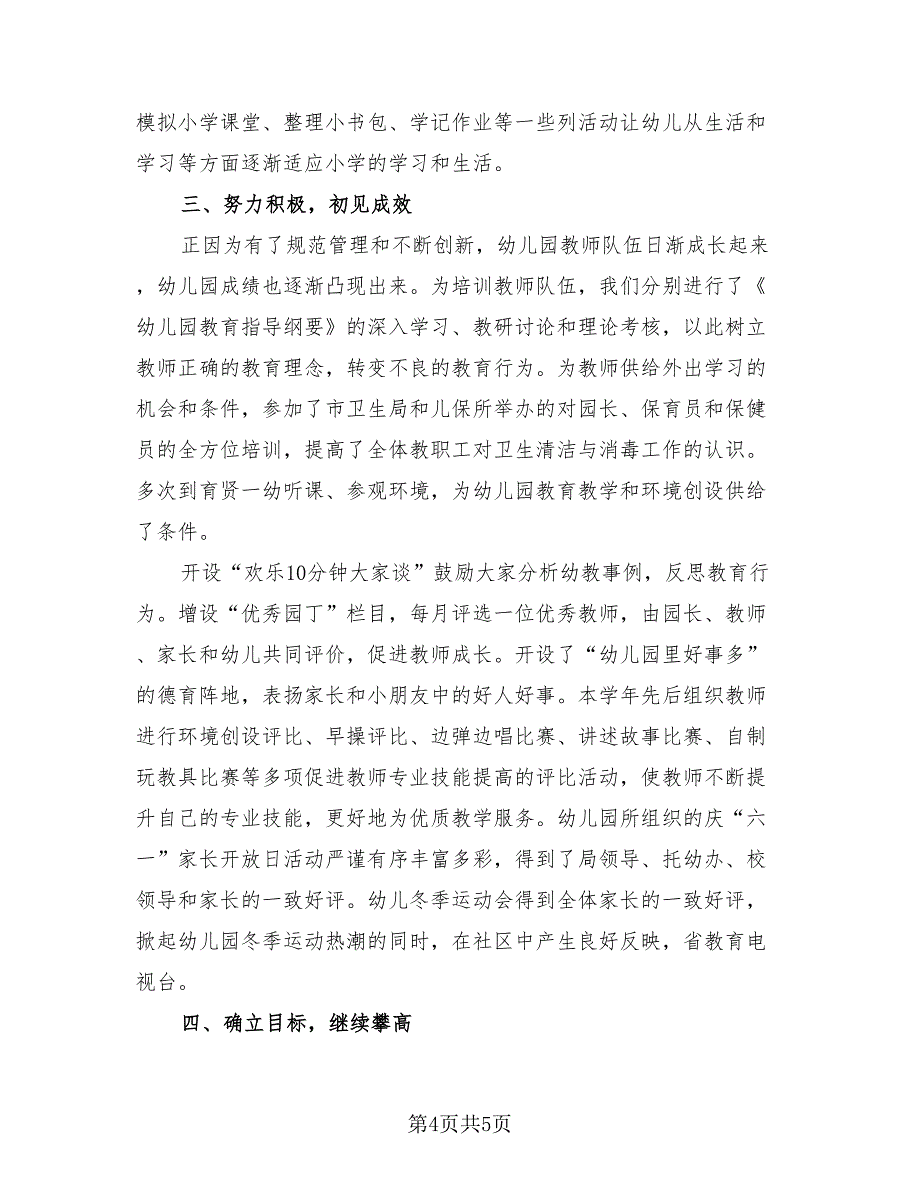 模拟小学课堂、整理小书包、学记作业等一些列活动让幼儿从生活和
学习等方面逐渐适应小学的学习和生活。
三、努力积极，初见成效
正因为有了规范管理和不断创新，幼儿园教师队伍日渐成长起来
，幼儿园成绩也逐渐凸现出来。为培训教师队伍，我们分别进行了《
幼儿园教育指导纲要》的深入学习、教研讨论和理论考核，以此树立
教师正确的教育理念，转变不良的教育行为。为教师供给外出学习的
机会和条件，参加了市卫生局和儿保所举办的对园长、保育员和保健
员的全方位培训，提高了全体教职工对卫生清洁与消毒工作的认识。
多次到育贤一幼听课、参观环境，为幼儿园教育教学和环境创设供给
了条件。
开设“欢乐10分钟大家谈”鼓励大家分析幼教事例，反思教育行
为。增设“优秀园丁”栏目，每月评选一位优秀教师，由园长、教师
、家长和幼儿共同评价，促进教师成长。开设了“幼儿园里好事多”
的德育阵地，表扬家长和小朋友中的好人好事。本学年先后组织教师
进行环境创设评比、早操评比、边弹边唱比赛、讲述故事比赛、自制
玩教具比赛等多项促进教师专业技能提高的评比活动，使教师不断提
升自己的专业技能，更好地为优质教学服务。幼儿园所组织的庆“六
一”家长开放日活动严谨有序丰富多彩，得到了局领导、托幼办、校
领导和家长的一致好评。幼儿冬季运动会得到全体家长的一致好评，
掀起幼儿园冬季运动热潮的同时，在社区中产生良好反映，省教育电
视台。
四、确立目标，继续攀高
第4页共5页